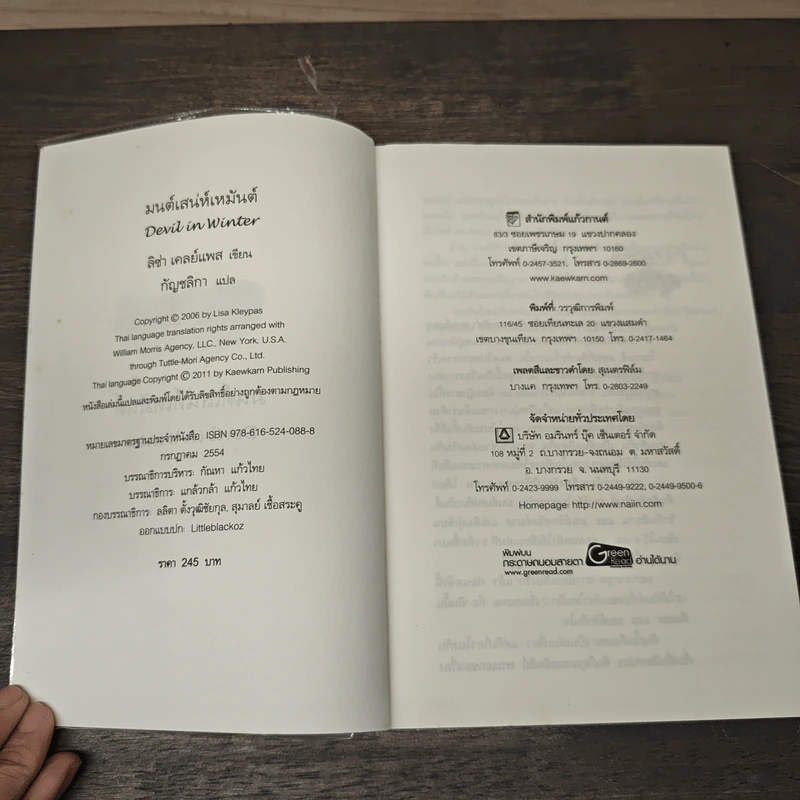 มนต์เสน่ห์เหมันต์
Devil in Winter
ลิซ่า เคลย์แพส เขียน
กัญชลิกา แปล
Copyright © 2006 by Lisa Kleypas
Thai language translation rights arranged with
William Morris Agency, LLC., New York, U.S.A.
through Tuttle-Mori Agency Co., Ltd.
Thai language Copyright © 2011 by Kaewkarn Publishing
หนังสือเล่มนี้แปลและพิมพ์โดยได้รับลิขสิทธิ์อย่างถูกต้องตามกฎหมาย
หมายเลขมาตรฐานประจำหนังสือ ISBN 978-616-524-088-8
กรกฎาคม 2554
บรรณาธิการบริหาร: กัณหา แก้วไทย
บรรณาธิการ: แกล้วกล้า แก้วไทย
กองบรรณาธิการ: ลลิตา ตั้งวุฒิชัยกุล, สุมาลย์ เชื้อสระคู
ออกแบบปก: Littleblackoz
ราคา 245 บาท
สำนักพิมพ์แก้วกานต์
63/3 ซอยเพชรเกษม 19 แขวงปากคลอง
เขตภาษีเจริญ กรุงเทพฯ 10160
โทรศัพท์ 0-2457-3521, โทรสาร 0-2869-2600
www.kaewkarn.com
พิมพ์ที่: วรวุฒิการพิมพ์
116/45 ซอยเทียนทะเล 20 แขวงแสมดำ
เขตบางขุนเทียน กรุงเทพฯ 10150 โทร. 0-2417-1464
เพลตสีและขาวดำโดย: สุเนตรฟิล์ม
บางแค กรุงเทพฯ โทร. 0-2803-2249
จัดจำหน่ายทั่วประเทศโดย
บริษัท อมรินทร์ บุ๊ค เซ็นเตอร์ จำกัด
108 หมู่ที่ 2 ถ.บางกรวย-จงถนอม ต. มหาสวัสดิ์
อ. บางกรวย จ. นนทบุรี 11130
โทรศัพท์ 0-2423-9999 โทรสาร 0-2449-9222, 0-2449-9500-6
Homepage: http://www.naiin.com
พิมพ์บน
กระดาษถนอมสายตา Green Read อ่านได้นาน
www.greenread.com